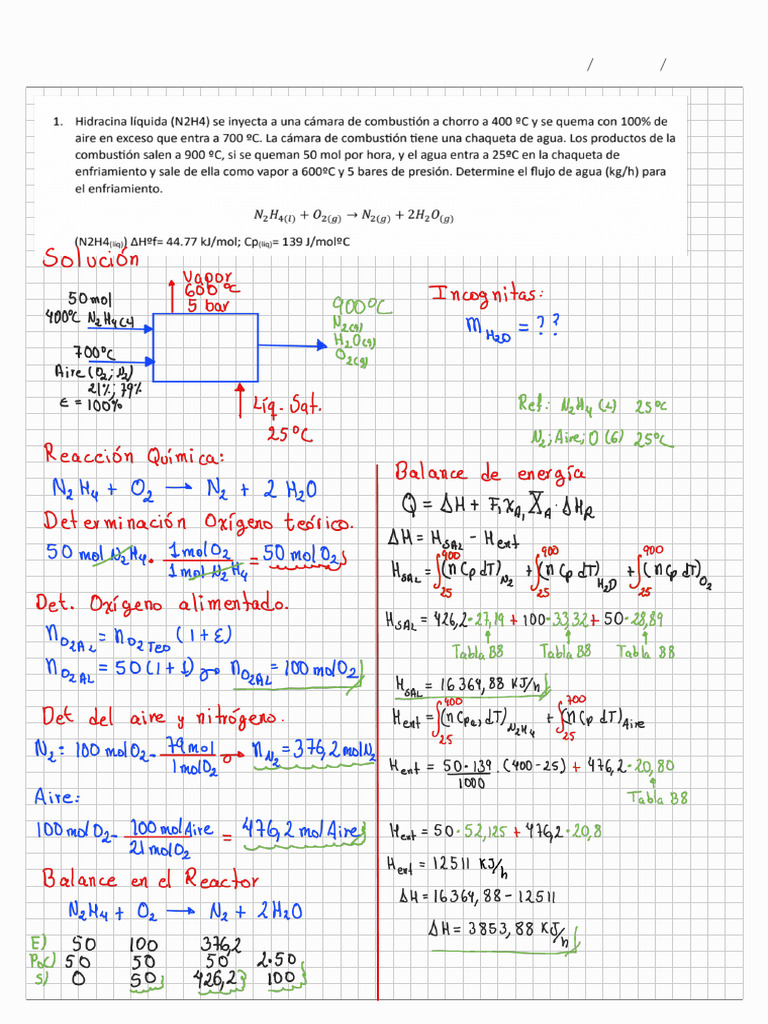 / /
1. Hidracina líquida (N2H4) se inyecta a una cámara de combustión a chorro a 400 ºC y se quema con 100% de
aire en exceso que entra a 700 ºC. La cámara de combustión tiene una chaqueta de agua. Los productos de la
combustión salen a 900 ºC, si se queman 50 mol por hora, y el agua entra a 25ºC en la chaqueta de
enfriamiento y sale de ella como vapor a 600ºC y 5 bares de presión. Determine el flujo de agua (kg/h) para
el enfriamiento.
N₂H₄(l) + O₂(g) → N₂(g) + 2H₂O(g)
(N2H4(liq)) ΔHºf= 44.77 kJ/mol; Cp(liq)= 139 J/molºC
Solución
Vapor
600°C
5 bar
50 mol
400°C N₂H₄(L)
700°C
Aire (O₂; N₂)
21%; 79%
ε = 100%
900°C
N₂(g)
H₂O(g)
O₂(g)
Líq. Sat.
25°C
Incognitas:
m H₂O = ??
Ref: N₂H₄ (L) 25°C
N₂; Aire; O (G) 25°C
Reacción Química:
N₂H₄ + O₂ → N₂ + 2 H₂O
Determinación Oxígeno teórico.
50 mol N₂H₄ · 1 mol O₂ / 1 mol N₂H₄ = 50 mol O₂
Det. Oxígeno alimentado.
n O₂AL = n O₂TEO (1+ε)
n O₂AL = 50 (1+1) n O₂AL = 100 mol O₂
Det del aire y nitrógeno.
N₂: 100 mol O₂ · 79 mol / 1 mol O₂ n N₂ = 376,2 mol N₂
Aire:
100 mol O₂ · 100 mol Aire / 21 mol O₂ = 476,2 mol Aire
Balance en el Reactor
N₂H₄ + O₂ → N₂ + 2H₂O
E) 50 100 376,2
PoC) 50 50 50 2·50
S) 0 50 426,2 100
Balance de energía
Q = ΔH + F₁ x A₁ X̄ A · ΔH R
ΔH = H SAL - H ent
H SAL = ∫₂₅⁹⁰⁰ (n Cp dT) N₂ + ∫₂₅⁹⁰⁰ (n Cp dT) H₂O + ∫₂₅⁹⁰⁰ (n Cp dT) O₂
H SAL = 426,2·27,19 + 100·33,32 + 50·28,89
Tabla B8 Tabla B8 Tabla B8
H SAL = 16364,88 KJ/h
H ent = ∫₂₅⁴⁰⁰ (n Cp(L) dT) N₂H₄ + ∫₂₅⁷⁰⁰ (n Cp dT) Aire
H ent = 50·139 / 1000 · (400-25) + 476,2·20,80
Tabla B8
H ent = 50·52,125 + 476,2·20,8
H ent = 12511 KJ/h
ΔH = 16364,88 - 12511
ΔH = 3853,88 KJ/h